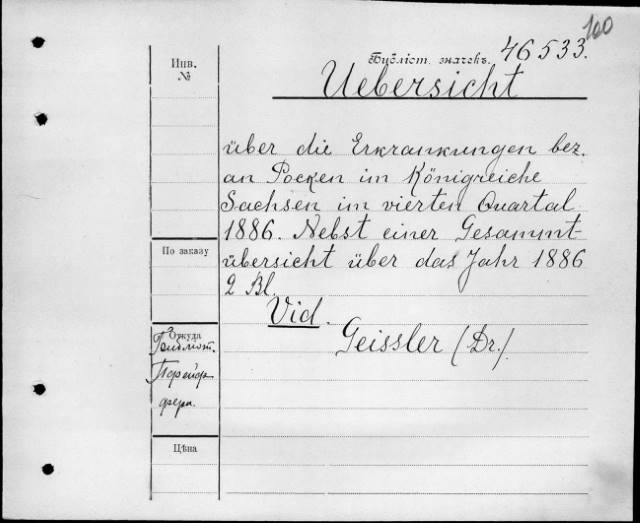 100
Инв.
№
Библіот. значекъ. 46533.
Uebersicht
über die Erkrankungen bez.
an Pocken im Königreiche
Sachsen im vierten Quartal
1886. Nebst einer Gesammt-
По заказу
übersicht über das Jahr 1886
2 Bl.
Vid.
Geissler (Dr.)
Откуда
Цѣна